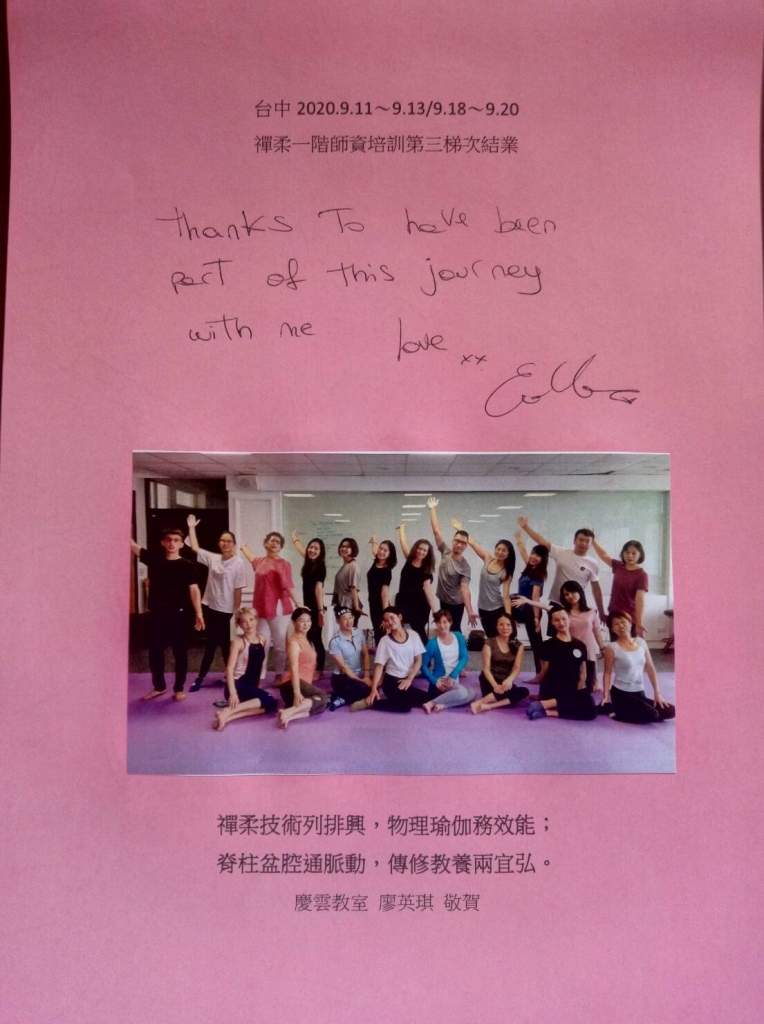 台中 2020.9.11～9.13/9.18～9.20
禪柔一階師資培訓第三梯次結業
Thanks To have been
part of this journey
with me love xx
禪柔技術列排興，物理瑜伽務效能；
脊柱盆腔通脈動，傳修教養兩宜弘。
慶雲教室 廖英琪 敬賀